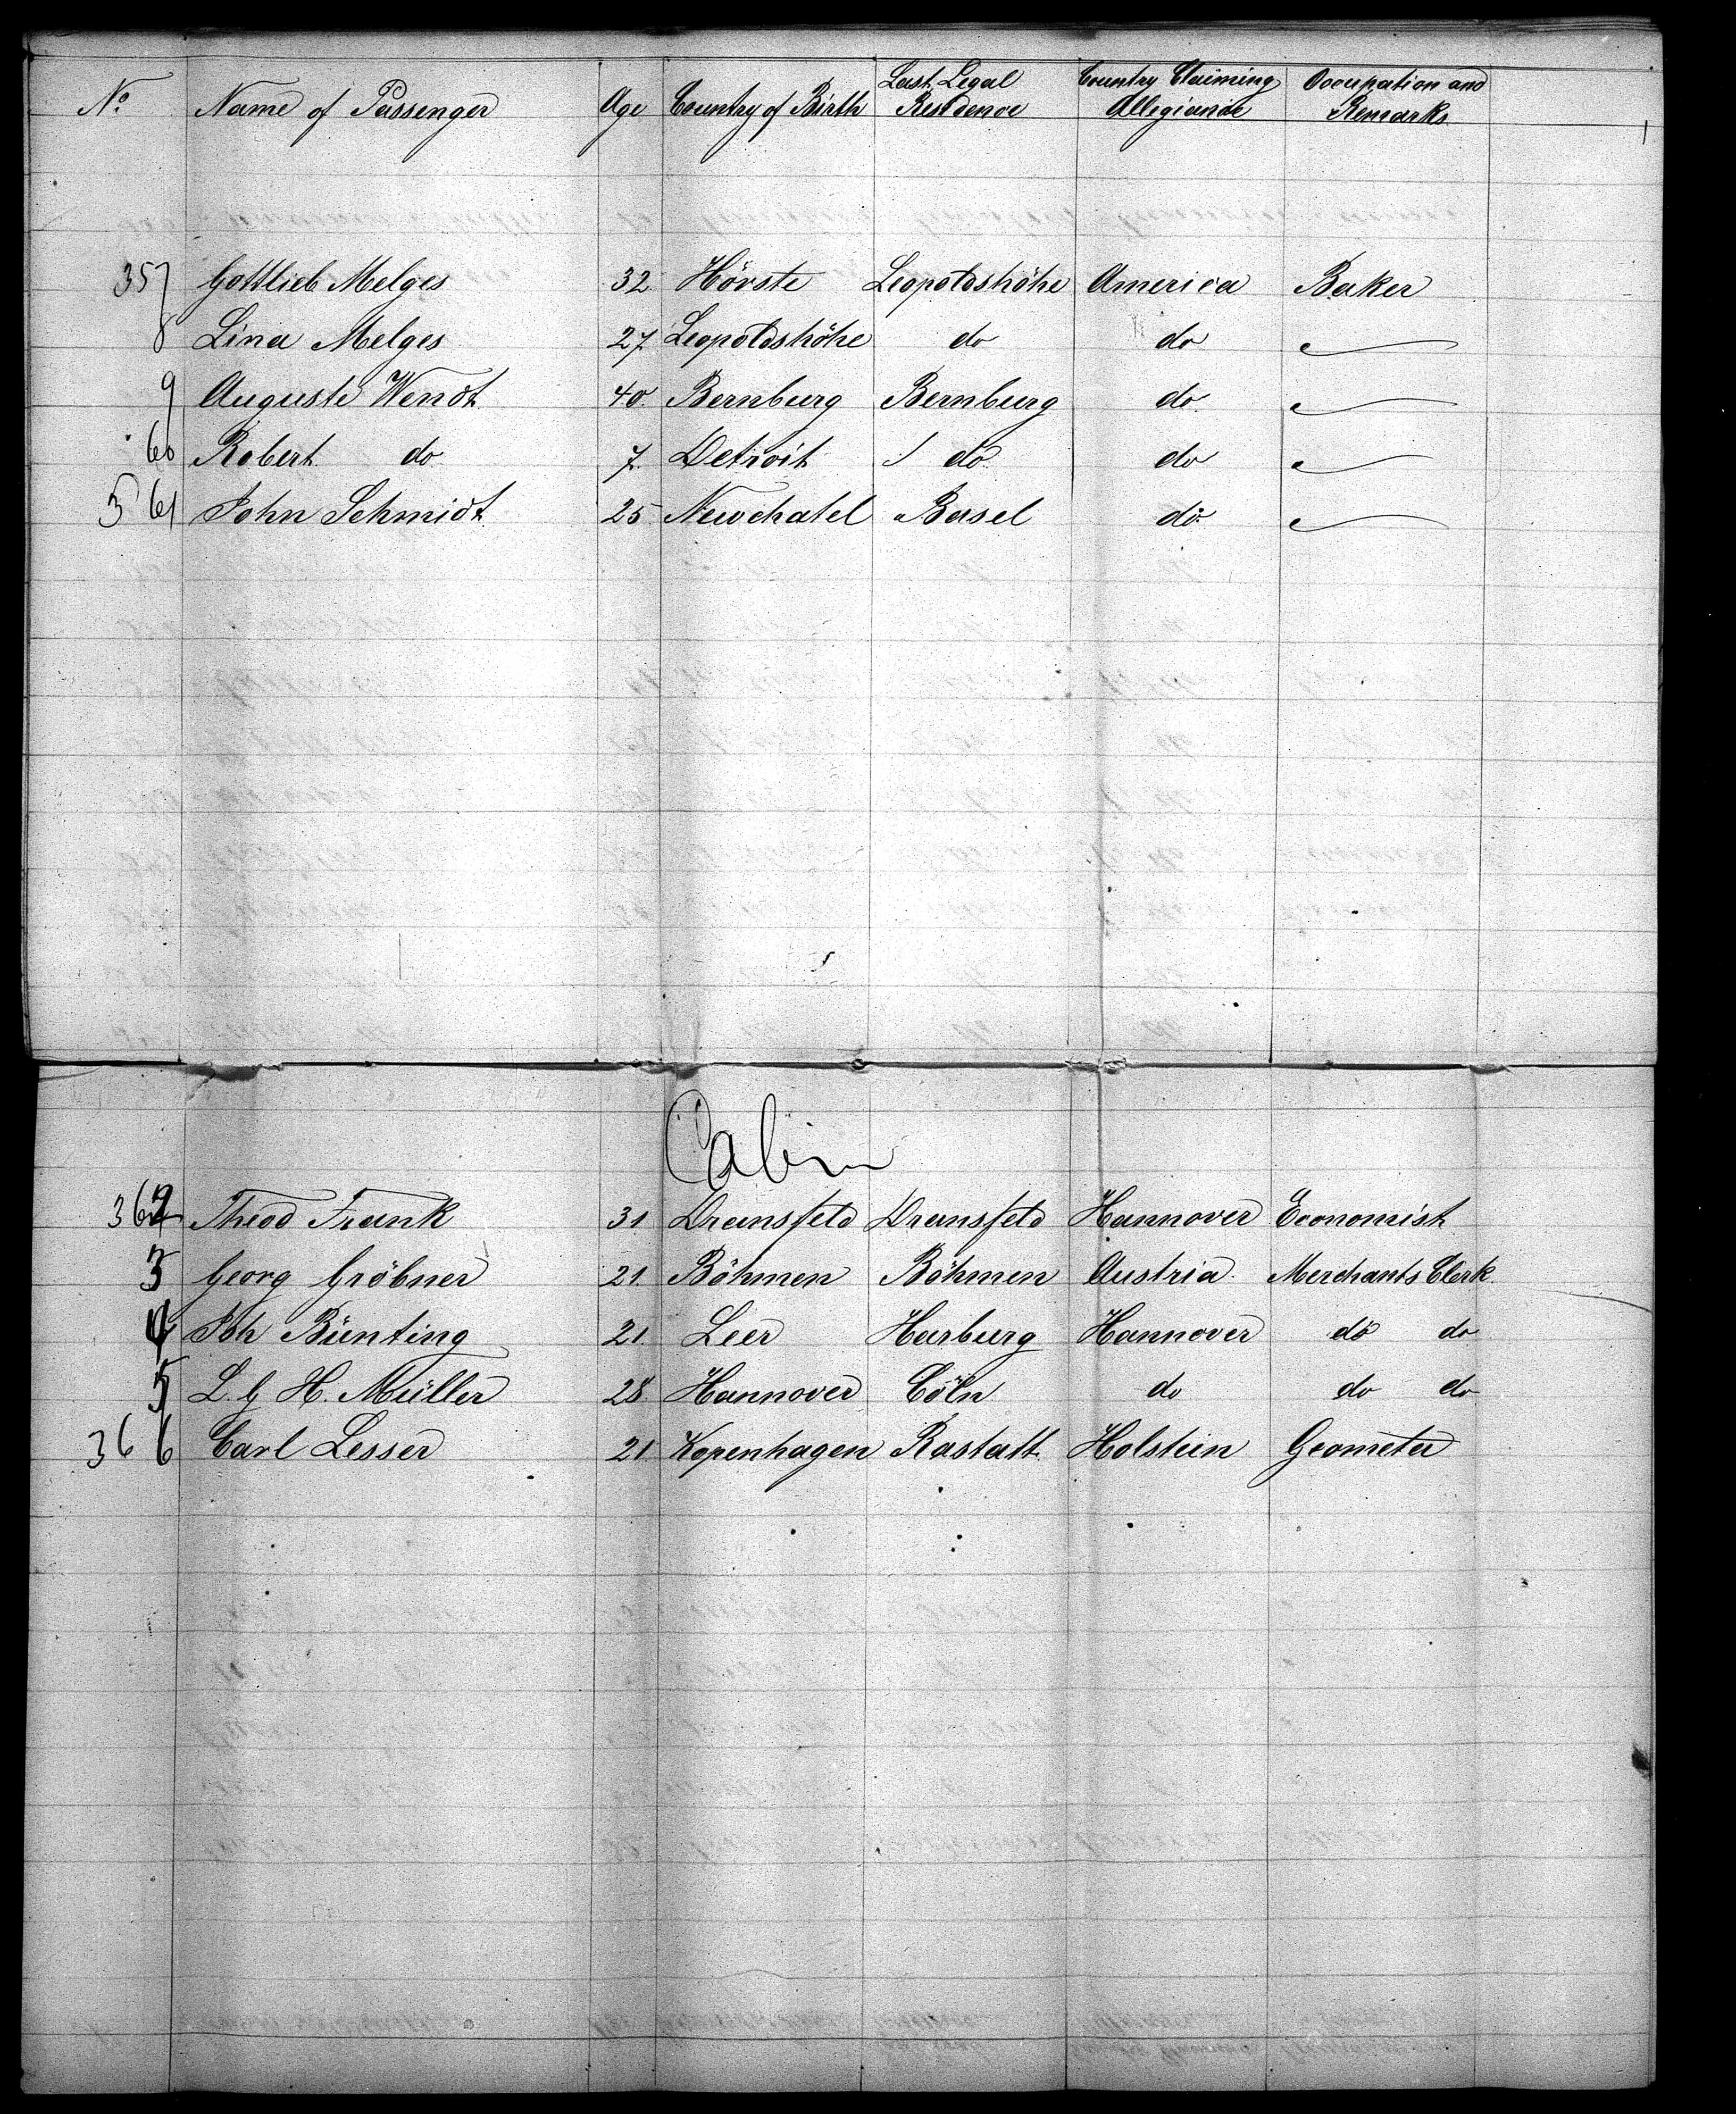 No Name of Passenger Age Country of Birth Last Legal Residence Country Claiming Allegiance Occupation and Remarks
357 Gottlieb Melges 32 Hörste Leopoldshöhe America Baker
8 Lina Melges 27 Leopoldshöhe do do
9 Auguste Wendt 40 Bernburg Bernburg do
60 Robert do 7 Detroit do do
361 John Schmidt 25 Newchatel Basel do
Cabin
362 Theod Frank 31 Dransfeld Dransfeld Hannover Economist
3 Georg Gröbner 21 Böhmen Böhmen Austria Merchants Clerk
4 Joh Bünting 21 Leer Harburg Hannover do do
5 L. G H. Müller 28 Hannover Cöln do do do
366 Carl Lesser 21 Kopenhagen Rastatt Holstein Geometer